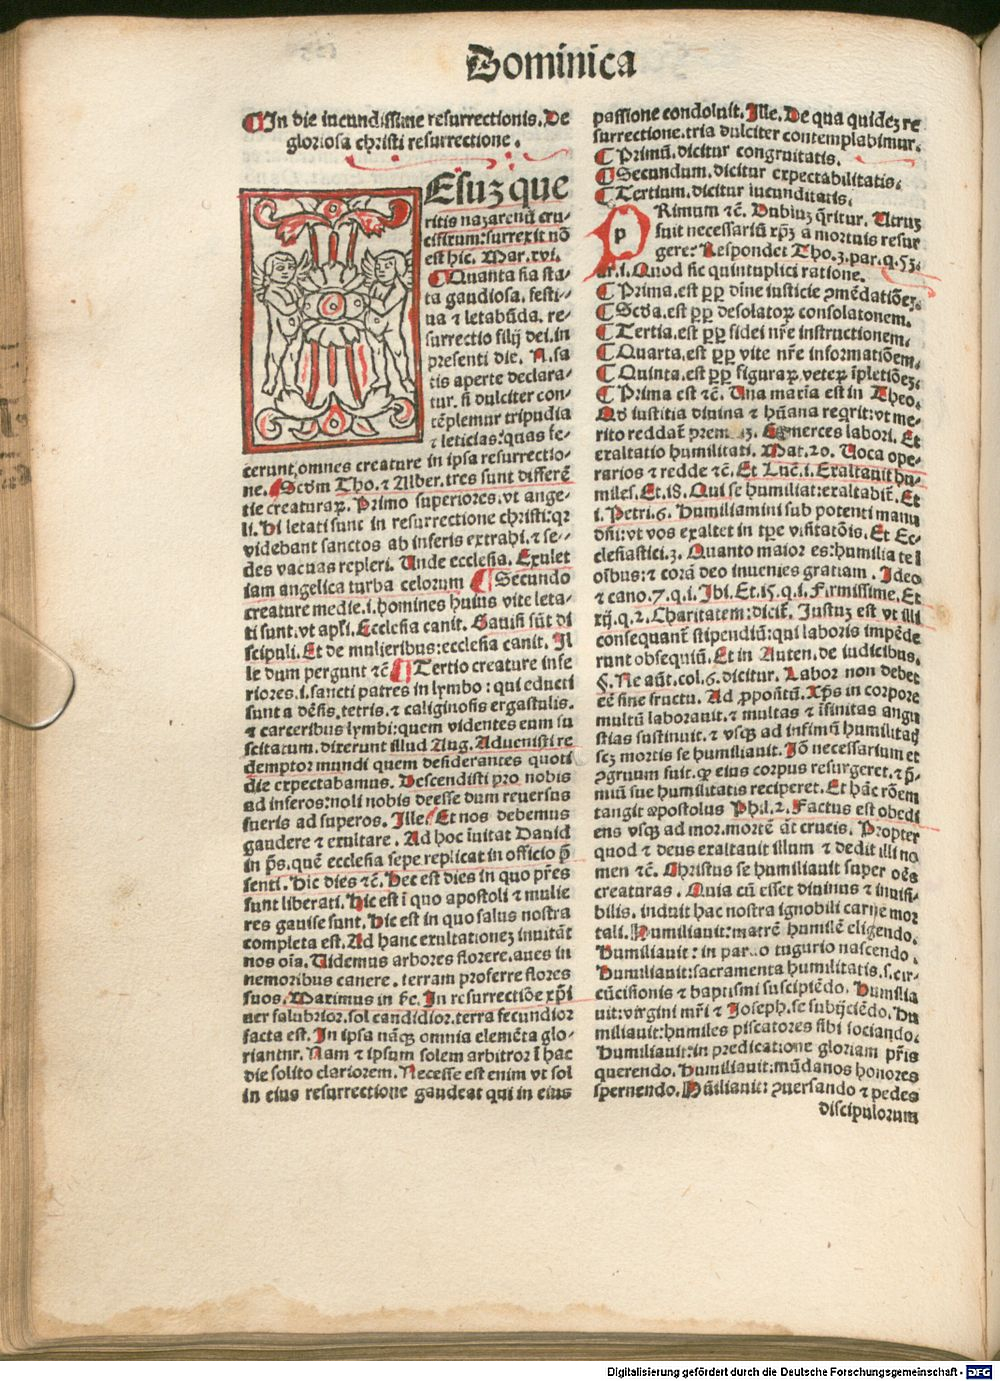 Dominica
¶In die iucundissime resurrectionis. De
gloriosa christi resurrectione.
Esuʒ que
ritis nazarenū cru-
cifixum: surrexit nō
est hic. Mar. xvi.
¶Quanta sia sta-
ta gaudiosa, festi-
ua ⁊ letabūda, re-
surrectio filij dei, in
presenti die. N. sa
tis aperte declara-
tur. si dulciter con-
tēplemur tripudia
⁊ leticias: quas fe-
cerunt, omnes creature in ipsa resurrectio-
ne. ¶Scd̄m Tho. ⁊ Alber. tres sunt differē
tie creaturaꝝ. Primo superiores. vt ange-
li. Hi letati sunt in resurrectione christi: qꝛ
videbant sanctos ab inferis extrahi. ⁊ se-
des vacuas repleri. Unde ecclesia. Exulet
iam angelica turba celorum ¶Secundo
creature medie. i. homines huius vite leta-
ti sunt. vt apl̄i. Ecclesia canit. Gauisi sūt di
scipuli. Et de mulieribus: ecclesia canit. Il
le dum pergunt ⁊c̄ ¶Tertio creature infe
riores. i. sancti patres in lymbo: qui educti
sunt a dēsis. tetris. ⁊ caliginosis ergastulis.
⁊ carceribus lymbi: quem videntes eum su
scitatum. dixerunt illud Aug. Aduenisti re
demptor mundi quem desiderantes quoti
die expectabamus. Descendisti pro nobis
ad inferos: noli nobis deesse dum reuersus
fueris ad superos. Ille. Et nos debemus
gaudere ⁊ exultare. Ad hoc īuitat Dauid
in p̄s. quē ecclesia sepe replicat in officio p̄
senti. Hic dies ⁊c̄. Hec est dies in quo pr̄es
sunt liberati. Hic est ī quo apostoli ⁊ mulie
res gauise sunt. Hic est in quo salus nostra
completa est. Ad hanc exultationeʒ inuitāt
nos oīa. Uidemus arbores florere. aues in
nemoribus canere. terram proferre flores
suos. Maximus in s̄c. In resurrectiōe xp̄i
aer salubrior. sol candidior. terra fecundior
facta est. In ipsa nāqꝫ omnia elemēta glo-
riantur. Nam ⁊ ipsum solem arbitror ī hac
die solito clariorem. Necesse est enim vt sol
in eius resurrectione gaudeat qui in eius
passione condoluit. Ille. De qua quideʒ re
surrectione. tria dulciter contemplabimur.
¶Primū. dicitur congruitatis.
¶Secundum. dicitur expectabilitatis.
¶Tertium. dicitur iucunditatis.
PRimum ⁊c̄. Dubiuʒ q̄ritur. Utruʒ
fuit necessariū xp̄ʒ a mortuis resur
gere: Respondet Tho. 3. par. q. 53.
ar. i. Quod sic quintuplici ratione.
¶Prima. est ꝓpꝑ diīne iusticie ꝯmēdatiōeʒ.
¶Scd̄a. est ꝓpꝑ desolatoꝝ consolatonem.
¶Tertia. est ꝓpꝑ fidei nr̄e instructionem.
¶Quarta. est ꝓpꝑ vite nr̄e informatiōem.
¶Quinta. est ꝓpꝑ figuraꝝ. veteꝝ īpletiōeʒ.
¶Prima est ⁊c̄. Una maria est in Theo.
Qd̄ iustitia diuina ⁊ hūana reqrit: vt me-
rito reddat̄ prem Et merces labori. Et
exaltatio humilitati. Mat. 20. Uoca ope-
rarios ⁊ redde ⁊c̄. Et Luc̄. i. Exaltauit hu-
miles. Et. 18. Qui se humiliat: exaltabit̄. Et
i. Petri. 6. Humiliamini sub potenti manu
dn̄i: vt vos exaltet in tp̄e visitatōis. Et Ec-
clesiastici. 3. Quanto maior es: humilia te ī
oībus: ⁊ corā deo inuenies gratiam. Ideo
⁊ cano. 7. q. i. Ibi. Et. 15. q. i. Firmissime. Et
xij. q. 2. Charitatem: dicit̄. Iustuʒ est vt illi
consequant̄ stipendiū: qui laboris impēde
runt obsequiū. Et in Auten. de iudicibus.
§. Ne aūt. col. 6. dicitur. Labor non debet
eē sine fructu. Ad ꝓpositū. Xp̄s in corpore
multū laborauit. ⁊ multas ⁊ īfinitas angu
stias sustinuit. ⁊ vsqꝫ ad infimū humilitatē
seʒ mortis se humiliauit. Iō necessarium et
ꝯgruum fuit. qꝙ eius corpus resurgeret. ⁊ p̄-
miū sue humilitatis reciperet. Et hāc rōem
tangit apostolus Phil. 2. Factus est obedi
ens vsqꝫ ad mor. mortē āt crucis. Propter
quod ⁊ deus exaltauit illum ⁊ dedit illi no
men ⁊c̄. Christus se humiliauit super oēs
creaturas. Quia cū esset diuinus ⁊ inuisi-
bilis. induit hac nostra ignobili carne mor
tali. Humiliauit: matrē humilē eligendo.
Humiliauit: in par o tugurio nascendo.
Humiliauit: sacramenta humilitatis. s. cir-
cūcisionis ⁊ baptismi suscipiēdo. Humilia
uit: virgini mr̄i ⁊ Ioseph. se subijciēdo. Hu
miliauit: humiles piscatores sibi sociando.
Humiliauit: in predicatione gloriam pr̄is
querendo. Humiliauit: mūdanos honores
spernendo. Hūiliauit: ꝯuersando ⁊ pedes
discipulorum
Digitalisierung gefördert durch die Deutsche Forschungsgemeinschaft - DFG